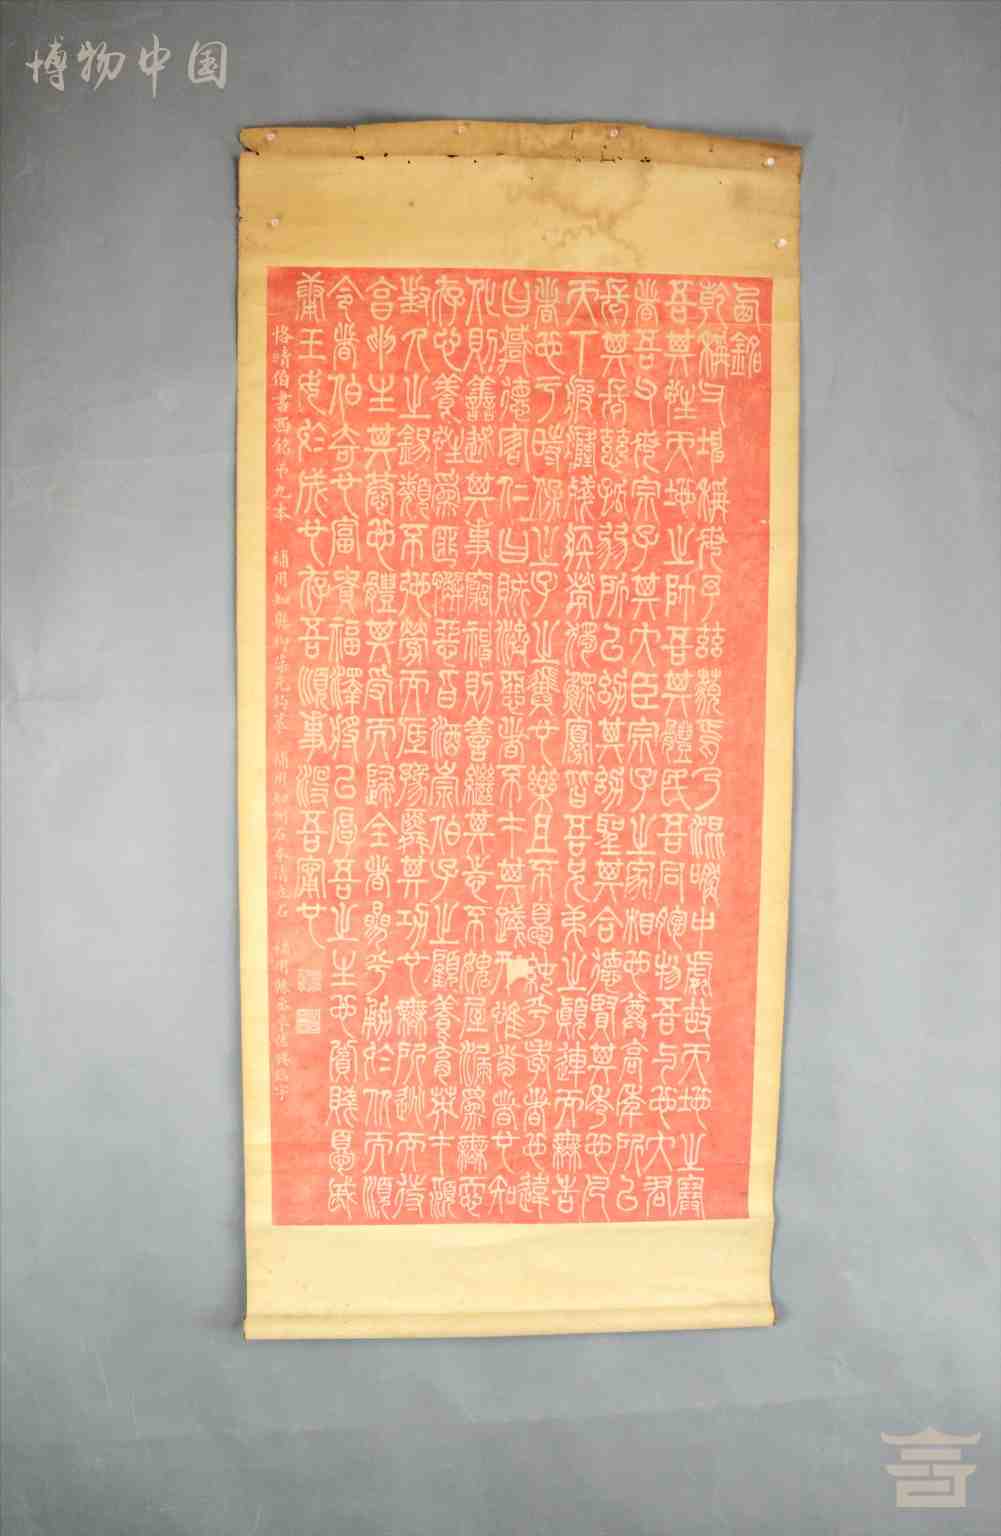 博物中国
西銘
乾稱父坤稱母予茲藐焉乃混然中處故天地之塞
吾其性天地之帥吾其體民吾同胞物吾与也大君
者吾父母宗子其大臣宗子之家相也尊高年所以
長其長慈孤弱所以幼其幼聖其合德賢其秀也凡
天下疲癃殘疾惸獨鰥寡皆吾兄弟之顛連而無告
者也于時保之子之翼也樂且不憂純乎孝者也違
曰悖德害仁曰賊濟惡者不才其踐形惟肖者也知
化則善述其事窮神則善繼其志不愧屋漏為無忝
存心養性為匪懈惡旨酒崇伯子之顧養育英才潁
封人之錫類不弛勞而厎豫舜其功也無所逃而待
亯申生其恭也體其受而歸全者參乎勇於從而順
令者伯奇也富貴福澤將以厚吾之生也貧賤憂戚
庸玉女於成也存吾順事沒吾寧也
恪靖伯書西銘弟九本 補用知縣 補用知州石本清立石 補用縣丞